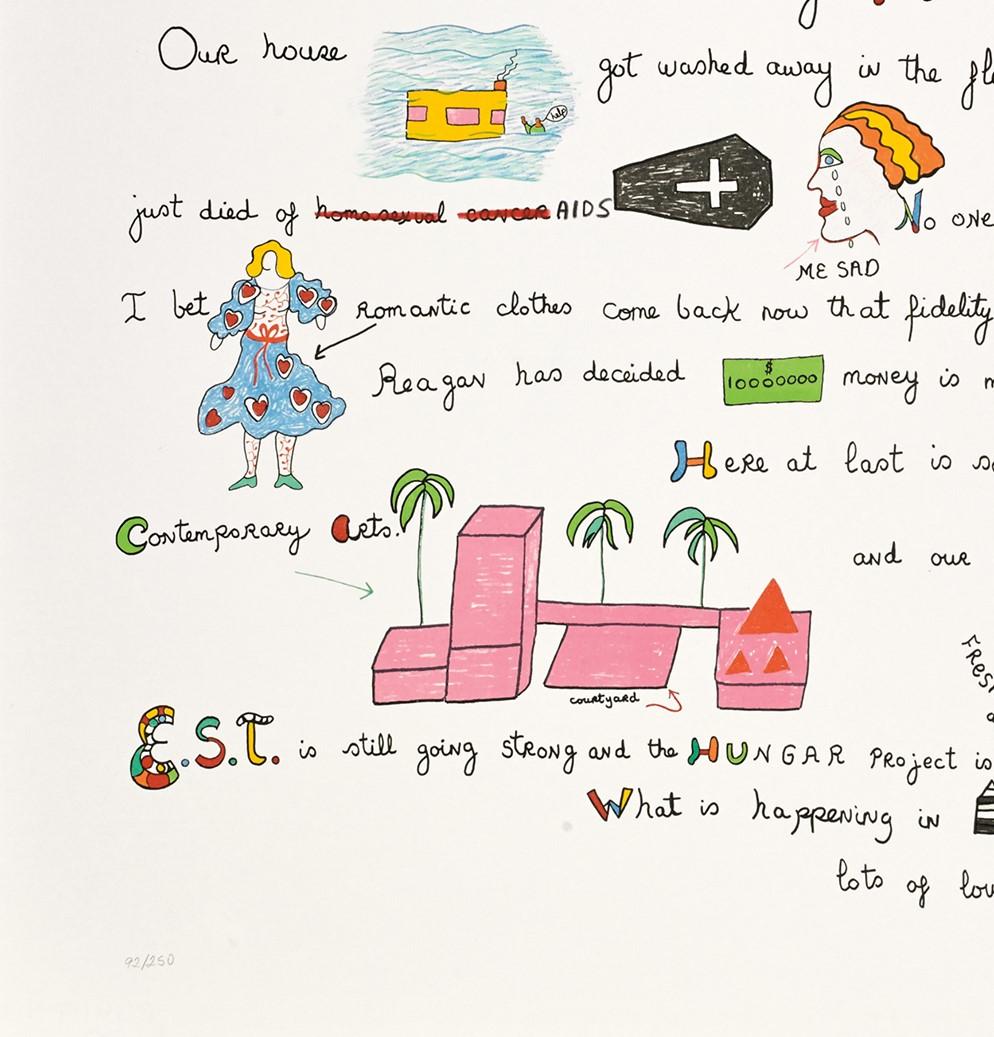 Our house
help
got washed away in the
just died of homosexual cancer AIDS
No one
ME SAD
I bet romantic clothes come back now that fidelity
Reagan has decided $ 10000000 money is
Here at last is
Contemporary Arts.
and our
courtyard
E.S.T. is still going strong and the HUNGAR Project is
What is happening in
lots of
92/250